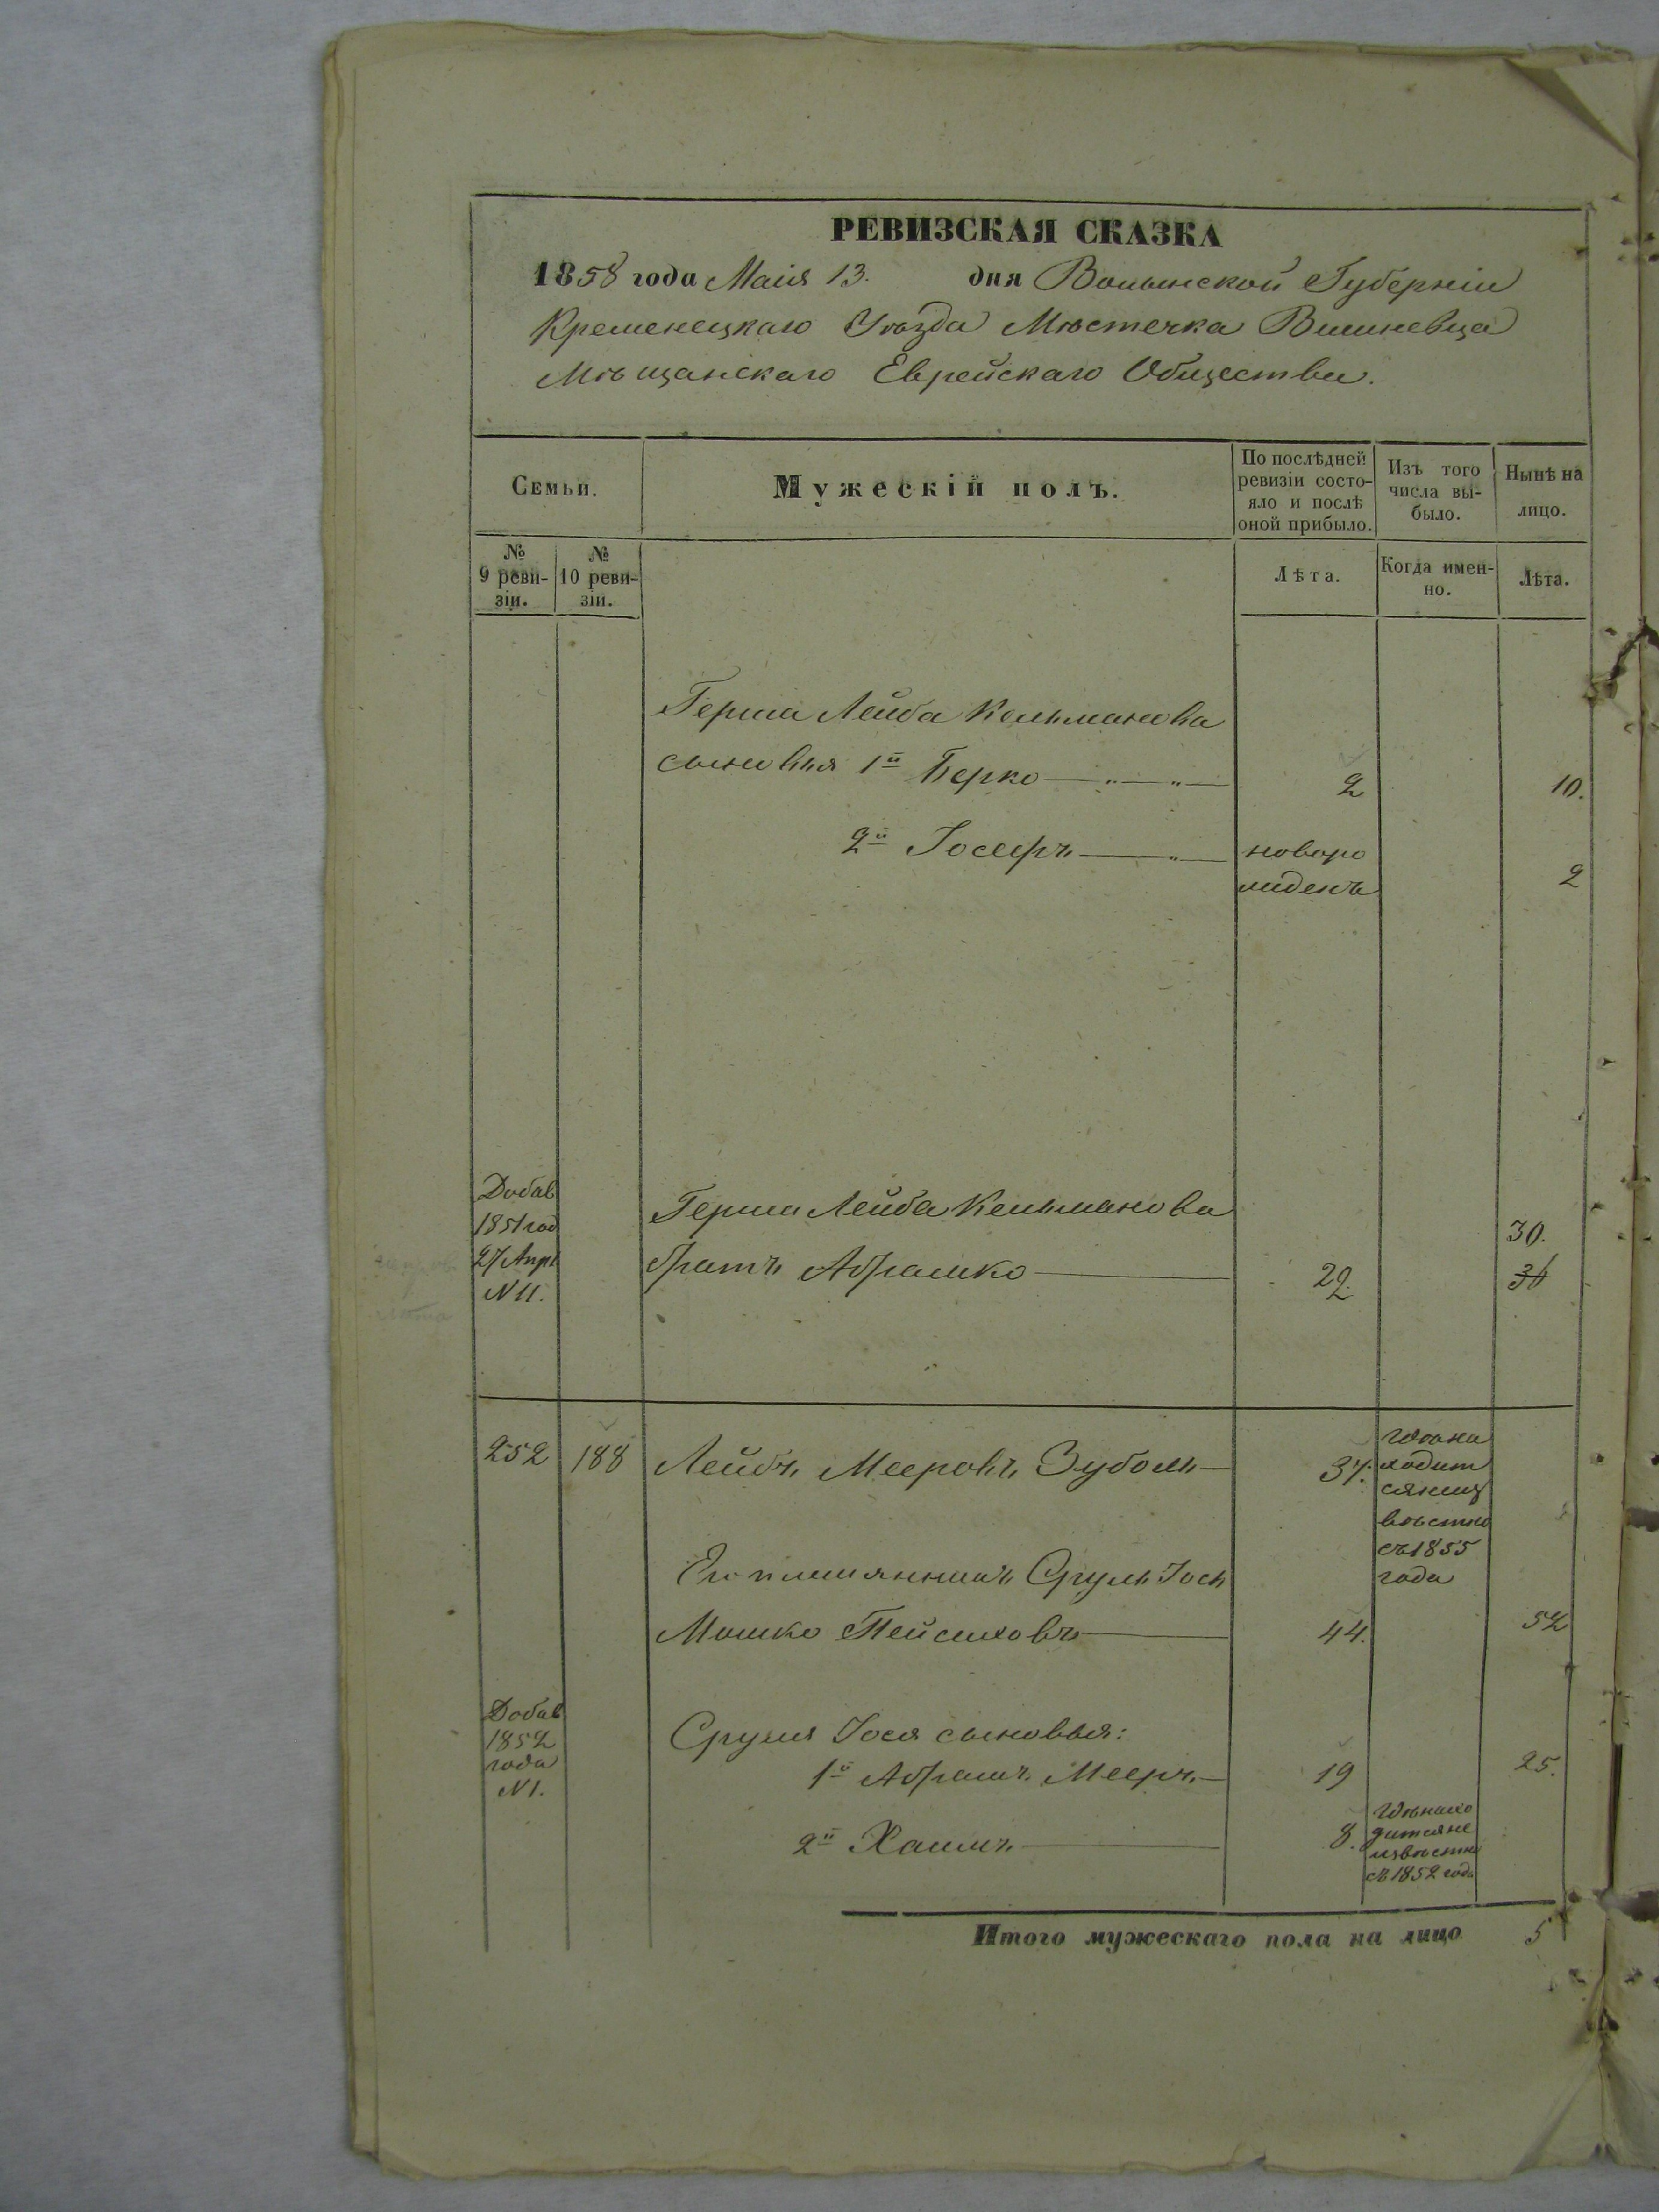 РЕВИЗСКАЯ СКАЗКА
1858 года Маія 13. дня Волынской Губерніи
Кременецкаго Уѣзда Мѣстечка Вишневца
Мѣщанскаго Еврейскаго Общества.
Семьи.
Мужескій полъ.
По послѣдней ревизіи состо-
яло и послѣ оной прибыло.
Изъ того числа вы-
было.
Нынѣ на лицо.
№ 9 реви-
зіи.
№ 10 реви-
зіи.
Лѣта.
Когда имен-
но.
Лѣта.
Герша Лейба Кельманова
сыновья 1й Берко 2 10.
2й Іосефъ новоро 2
жденъ
Добав
1851 год
27 Апрѣ
N 11.
Герша Лейба Кельманова 30.
братъ Абрашко 22. 36
252 188 Лейбъ Мееровъ 37.
гдѣ на
ходит
ся неиз
вѣстно
съ 1855
года
Его племянникъ Сруль Іось
Мошко Пейсиховъ 44. 52
Добав
1852
года
N 1.
Сруля Іося сыновья:
1й Абрамъ Мееръ 19 25.
2й Хаимъ 8.
гдѣ нахо
дится не
извѣстно
съ 1852 года
Итого мужескаго пола на лицо 5